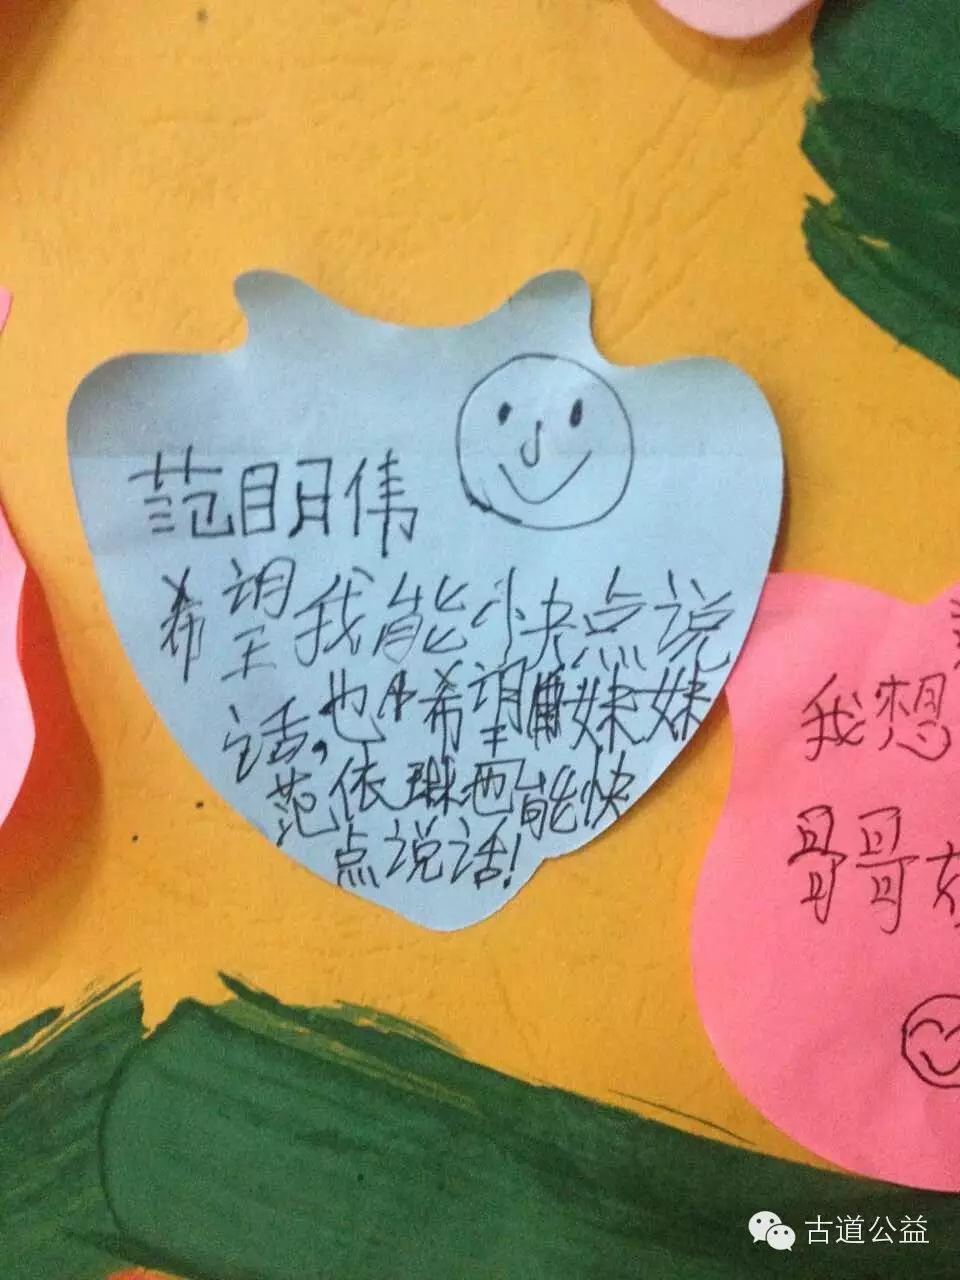 范明伟
希望我能快点说
话,也希望妹妹
范依琳也能快
点说话!
我想
哥哥
古道公益